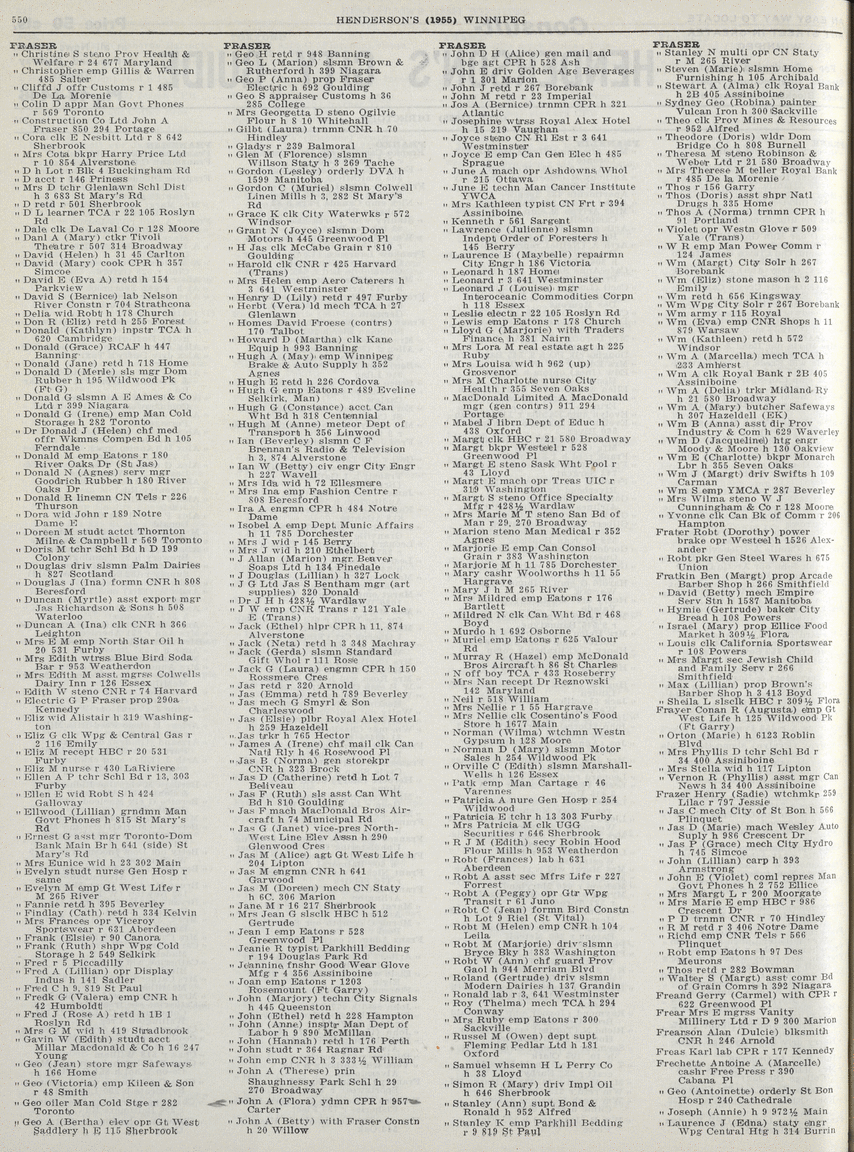 550
HENDERSON'S (1955) WINNIPEG
FRASER
" Christine S steno Prov Health &
Welfare r 24 677 Maryland
" Christopher emp Gillis & Warren
485 Salter
" Cliffd J offr Customs r 1 485
De La Morenie
" Colin D appr Man Govt Phones
r 569 Toronto
" Construction Co Ltd John A
Fraser 850 294 Portage
" Cora clk E Nesbitt Ltd r 8 642
Sherbrook
" Mrs Cota bkpr Harry Price Ltd
r 10 854 Alverstone
" D h Lot r Blk 4 Buckingham Rd
" D acct r 146 Princess
" Mrs D tchr Glenlawn Schl Dist
h 3 683 St Mary's Rd
" D retd r 501 Sherbrook
" D L learner TCA r 22 105 Roslyn
Rd
" Dale clk De Laval Co r 128 Moore
" Danl A (Mary) ctkr Tivoli
Theatre r 507 314 Broadway
" David (Helen) h 31 45 Carlton
" David (Mary) cook CPR h 357
Simcoe
" David E (Eva A) retd h 154
Parkview
" David S (Bernice) lab Nelson
River Constn r 704 Strathcona
" Delia wid Robt h 178 Church
" Don R (Eliz) retd h 255 Forest
" Donald (Kathlyn) inpstr TCA h
620 Cambridge
" Donald (Grace) RCAF h 447
Banning
" Donald (Jane) retd h 718 Home
" Donald D (Merle) sls mgr Dom
Rubber h 195 Wildwood Pk
(Ft G)
" Donald G slsmn A E Ames & Co
Ltd r 399 Niagara
" Donald G (Irene) emp Man Cold
Storage h 282 Toronto
" Dr Donald J (Helen) chf med
offr Wkmns Compen Bd h 105
Ferndale
" Donald M emp Eatons r 180
River Oaks Dr (St Jas)
" Donald N (Agnes) serv mgr
Goodrich Rubber h 180 River
Oaks Dr
" Donald R linemn CN Tels r 226
Thurson
" Dora wid John r 189 Notre
Dame E
" Doreen M studt actct Thornton
Milne & Campbell r 569 Toronto
" Doris M tchr Schl Bd h D 199
Colony
" Douglas driv slsmn Palm Dairies
h 827 Scotland
" Douglas J (Ina) formn CNR h 808
Beresford
" Duncan (Myrtle) asst export mgr
Jas Richardson & Sons h 508
Waterloo
" Duncan A (Ina) clk CNR h 366
Leighton
" Mrs E M emp North Star Oil h
20 531 Furby
" Mrs Edith wtrss Blue Bird Soda
Bar r 953 Weatherdon
" Mrs Edith M asst mgrss Colwells
Dairy Inn r 126 Essex
" Edith W steno CNR r 74 Harvard
" Electric G P Fraser prop 290a
Kennedy
" Eliz wid Alistair h 319 Washing-
ton
" Eliz G clk Wpg & Central Gas r
2 116 Emily
" Eliz M recept HBC r 20 531
Furby
" Eliz M nurse r 430 LaRiviere
" Ellen A P tchr Schl Bd r 13, 303
Furby
" Ellen E wid Robt S h 424
Galloway
" Ellwood (Lillian) grndmn Man
Govt Phones h 815 St Mary's
Rd
" Ernest G asst mgr Toronto-Dom
Bank Main Br h 641 (side) St
Mary's Rd
" Mrs Eunice wid h 23 302 Main
" Evelyn studt nurse Gen Hosp r
same
" Evelyn M emp Gt West Life r
M 265 River
" Fannie retd h 395 Beverley
" Findlay (Cath) retd h 334 Kelvin
" Mrs Frances opr Viceroy
Sportswear r 631 Aberdeen
" Frank (Elsie) r 90 Canora
" Frank (Ruth) shpr Wpg Cold
Storage h 2 549 Selkirk
" Fred r 5 Piccadilly
" Fred A (Lillian) opr Display
Indus h 141 Sadler
" Fred C h 9, 819 St Paul
" Fredk G (Valera) emp CNR h
42 Humboldt
" Fred J (Rose A) retd h 1B 1
Roslyn Rd
" Mrs G M wid h 419 Stradbrook
" Gavin W (Edith) studt acct
Millar Macdonald & Co h 16 247
Young
" Geo (Jean) store mgr Safeways
h 166 Home
" Geo (Victoria) emp Kileen & Son
r 48 Smith
" Geo oller Man Cold Stge r 282
Toronto
" Geo A (Bertha) elev opr Gt West
Saddlery h E 115 Sherbrook
FRASER
" Geo H retd r 948 Banning
" Geo L (Marion) slsmn Brown &
Rutherford h 399 Niagara
" Geo P (Anna) prop Fraser
Electric h 692 Goulding
" Geo S appraiser Customs h 36
285 College
" Mrs Georgetta D steno Ogilvie
Flour h 8 10 Whitehall
" Gilbt (Laura) trnmn CNR h 70
Hindley
" Gladys r 239 Balmoral
" Glen M (Florence) slsmn
Willson Staty h 3 269 Tache
" Gordon (Lesley) orderly DVA h
1599 Manitoba
" Gordon C (Muriel) slsmn Colwell
Linen Mills h 3, 282 St Mary's
Rd
" Grace K clk City Waterwks r 572
Windsor
" Grant N (Joyce) slsmn Dom
Motors h 445 Greenwood Pl
" H Jas clk McCabe Grain r 810
Goulding
" Harold clk CNR r 425 Harvard
(Trans)
" Mrs Helen emp Aero Caterers h
3 641 Westminster
" Henry D (Lily) retd r 497 Furby
" Herbt (Vera) ld mech TCA h 27
Glenlawn
" Homes David Froese (contrs)
170 Talbot
" Howard D (Martha) clk Kane
Equip h 993 Banning
" Hugh A (May) emp Winnipeg
Brake & Auto Supply h 352
Agnes
" Hugh E retd h 226 Cordova
" Hugh G emp Eatons r 489 Eveline
Selkirk, Man)
" Hugh G (Constance) acct Can
Wht Bd h 318 Centennial
" Hugh M (Anne) meteor Dept of
Transport h 356 Linwood
" Ian (Beverley) slsmn C F
Brennan's Radio & Television
h 3, 874 Alverstone
" Ian W (Betty) civ engr City Engr
h 227 Wavell
" Mrs Ida wid h 72 Ellesmere
" Mrs Ina emp Fashion Centre r
808 Beresford
" Ira A engmn CPR h 484 Notre
Dame
" Isobel A emp Dept Munic Affairs
h 11 785 Dorchester
" Mrs J wid r 145 Berry
" Mrs J wid h 210 Ethelbert
" J Allan (Marion) mgr Beaver
Soaps Ltd h 134 Pinedale
" J Douglas (Lillian) h 327 Lock
" J G Ltd Jas S Bentham mgr (art
supplies) 320 Donald
" Dr J H h 428½ Wardlaw
" J W emp CNR Trans r 121 Yale
E (Trans)
" Jack (Ethel) hlpr CPR h 11, 874
Alverstone
" Jack (Neta) retd h 3 348 Machray
" Jack (Gerda) slsmn Standard
Gift Whol r 111 Rose
" Jack G (Laura) engmn CPR h 150
Rossmere Cres
" Jas retd r 320 Arnold
" Jas (Emma) retd h 789 Beverley
" Jas mech G Smyrl & Son
Charleswood
" Jas (Elsie) plbr Royal Alex Hotel
h 259 Hazeldell
" Jas trkr h 765 Hector
" James A (Irene) chf mail clk Can
Natl Rly h 46 Rosewood Pl
" Jas B (Norma) gen storekpr
CNR h 323 Brock
" Jas D (Catherine) retd h Lot 7
Beliveau
" Jas F (Ruth) sls asst Can Wht
Bd h 810 Goulding
" Jas F mach MacDonald Bros Air-
craft h 74 Municipal Rd
" Jas G (Janet) vice-pres North-
West Line Elev Assn h 290
Glenwood Cres
" Jas M (Alice) agt Gt West Life h
204 Lipton
" Jas M engmn CNR h 641
Garwood
" Jas M (Doreen) mech CN Staty
h 6C, 306 Marion
" Jane M r 16 217 Sherbrook
" Mrs Jean G slsclk HBC h 512
Gertrude
" Jean I emp Eatons r 528
Greenwood Pl
" Jeanie R typist Parkhill Bedding
r 194 Douglas Park Rd
" Jeannine fnshr Good Wear Glove
Mfg r 4 356 Assiniboine
" Joan emp Eatons r 1203
Rosemount (Ft Garry)
" John (Marjory) techn City Signals
h 445 Queenston
" John (Ethel) retd h 228 Hampton
" John (Anne) insptr Man Dept of
Labor h 9 890 McMillan
" John (Hannah) retd h 176 Perth
" John studt r 364 Ragnar Rd
" John emp CNR h 3 333½ William
" John A (Therese) prin
Shaughnessy Park Schl h 29
270 Broadway
" John A (Flora) ydmn CPR h 957
Carter
" John A (Betty) with Fraser Constn
h 20 Willow
FRASER
" John D H (Alice) gen mail and
bge agt CPR h 528 Ash
" John E driv Golden Age Beverages
r 1 301 Marion
" John J retd r 267 Borebank
" John M retd r 23 Imperial
" Jos A (Bernice) trnmn CPR h 321
Atlantic
" Josephine wtrss Royal Alex Hotel
h 15 219 Vaughan
" Joyce steno CN Rl Est r 3 641
Westminster
" Joyce E emp Can Gen Elec h 485
Sprague
" June A mach opr Ashdowns Whol
r 215 Ottawa
" June E techn Man Cancer Institute
YWCA
" Mrs Kathleen typist CN Frt r 394
Assiniboine
" Kenneth r 561 Sargent
" Lawrence (Julienne) slsmn
Indept Order of Foresters h
145 Berry
" Laurence B (Maybelle) repairmn
City Engr h 186 Victoria
" Leonard h 187 Home
" Leonard r 3 641 Westminster
" Leonard J (Louise) mgr
Interoceanic Commodities Corpn
h 118 Essex
" Leslie electn r 22 105 Roslyn Rd
" Lewis emp Eatons r 178 Church
" Lloyd G (Marjorie) with Traders
Finance h 381 Nairn
" Mrs Lora M real estate agt h 225
Ruby
" Mrs Louisa wid h 962 (up)
Grosvenor
" Mrs M Charlotte nurse City
Health r 355 Seven Oaks
" MacDonald Limited A MacDonald
mgr (gen contrs) 911 294
Portage
" Mabel J librn Dept of Educ h
438 Oxford
" Margt clk HBC r 21 580 Broadway
" Margt bkpr Westeel r 528
Greenwood Pl
" Margt E steno Sask Wht Pool r
43 Lloyd
" Margt E mach opr Treas UIC r
319 Washington
" Margt S steno Office Specialty
Mfg r 428½ Wardlaw
" Mrs Marie M T steno San Bd of
Man r 29, 270 Broadway
" Marion steno Man Medical r 352
Agnes
" Marjorie E emp Can Consol
Grain r 383 Washington
" Marjorie M h 11 785 Dorchester
" Mary cashr Woolworths h 11 55
Hargrave
" Mary J h M 265 River
" Mrs Mildred emp Eatons r 176
Bartlett
" Mildred N clk Can Wht Bd r 468
Boyd
" Murdo h 1 692 Osborne
" Muriel emp Eatons r 625 Valour
Rd
" Murray R (Hazel) emp McDonald
Bros Aircraft h 86 St Charles
" N off boy TCA r 433 Roseberry
" Mrs Nan recept Dr Reznowski
142 Maryland
" Neil r 518 William
" Mrs Nellie r 1 55 Hargrave
" Mrs Nellie clk Cosentino's Food
Store h 1677 Main
" Norman (Wilma) wtchmn Westn
Gypsum h 128 Moore
" Norman D (Mary) slsmn Motor
Sales h 254 Wildwood Pk
" Orville C (Edith) slsmn Marshall-
Wells h 126 Essex
" Patk emp Man Cartage r 46
Varennes
" Patricia A nure Gen Hosp r 254
Wildwood
" Patricia E tchr h 13 303 Furby
" Mrs Patricia M clk UGG
Securities r 646 Sherbrook
" R J M (Edith) secy Robin Hood
Flour Mills h 953 Weatherdon
" Robt (Frances) lab h 631
Aberdeen
" Robt A asst sec Mfrs Life r 227
Forrest
" Robt A (Peggy) opr Gtr Wpg
Transit r 61 Juno
" Robt C (Jean) formn Bird Constn
h Lot 9 Riel (St Vital)
" Robt M (Helen) emp CNR h 104
Leila
" Robt M (Marjorie) driv slsmn
Bryce Bky h 383 Washington
" Robt W (Ann) chf guard Prov
Gaol h 944 Merriam Blvd
" Roland (Gertrude) driv slsmn
Modern Dairies h 137 Grandin
" Ronald lab r 3, 641 Westminster
" Roy (Thelma) mech TCA h 294
Conway
" Mrs Ruby emp Eatons r 300
Sackville
" Russel M (Owen) dept supt
Fleming Pedlar Ltd h 181
Oxford
" Samuel whsemn H L Perry Co
h 38 Lloyd
" Simon R (Mary) driv Impl Oil
h 646 Sherbrook
" Stanley (Ann) supt Bond &
Ronald h 952 Alfred
" Stanley K emp Parkhill Bedding
r 9 819 St Paul
FRASER
" Stanley N multi opr CN Staty
r M 265 River
" Steven (Marie) slsmn Home
Furnishing h 105 Archibald
" Stewart A (Alma) clk Royal Bank
h 2B 405 Assiniboine
" Sydney Geo (Robina) painter
Vulcan Iron h 300 Sackville
" Theo clk Prov Mines & Resources
r 952 Alfred
" Theodore (Doris) wldr Dom
Bridge Co h 808 Burnell
" Theresa M steno Robinson &
Weber Ltd r 21 580 Broadway
" Mrs Therese M teller Royal Bank
r 485 De la Morenie
" Thos r 156 Garry
" Thos (Doris) asst shpr Natl
Drugs h 335 Home
" Thos A (Norma) trnmn CPR h
91 Portland
" Violet opr Westn Glove r 509
Yale (Trans)
" W R emp Man Power Comm r
124 James
" Wm (Margt) City Solr h 267
Borebank
" Wm (Eliz) stone mason h 2 116
Emily
" Wm retd h 656 Kingsway
" Wm Wpg City Solr r 267 Borebank
" Wm army r 115 Royal
" Wm (Eva) emp CNR Shops h 11
879 Warsaw
" Wm (Kathleen) retd h 572
Windsor
" Wm A (Marcella) mech TCA h
233 Amherst
" Wm A clk Royal Bank r 2B 405
Assiniboine
" Wm A (Delia) trkr Midland Ry
h 21 580 Broadway
" Wm A (Mary) butcher Safeways
h 307 Hazeldell (EK)
" Wm B (Anna) asst dir Prov
Industry & Com h 629 Waverley
" Wm D (Jacqueline) htg engr
Moody & Moore h 130 Oakview
" Wm E (Charlotte) bkpr Monarch
Lbr h 355 Seven Oaks
" Wm J (Margt) driv Swifts h 109
Carman
" Wm S emp YMCA r 287 Beverley
" Mrs Wilma steno W J
Cunningham & Co r 128 Moore
" Yvonne clk Can Bk of Comm r 206
Hampton
Frater Robt (Dorothy) power
brake opr Westeel h 1526 Alex-
ander
" Robt pkr Gen Steel Wares h 675
Union
Fratkin Ben (Margt) prop Arcade
Barber Shop h 266 Smithfield
" David (Betty) mech Empire
Serv Stn h 1587 Manitoba
" Hymie (Gertrude) baker City
Bread h 108 Powers
" Israel (Mary) prop Ellice Food
Market h 309½ Flora
" Louis clk California Sportswear
r 108 Powers
" Mrs Margt sec Jewish Child
and Family Serv r 266
Smithfield
" Max (Lillian) prop Brown's
Barber Shop h 3 413 Boyd
" Sheila L slsclk HBC r 309½ Flora
Frayer Conan R (Augusta) emp Gt
West Life h 125 Wildwood Pk
(Ft Garry)
" Orton (Marie) h 6123 Roblin
Blvd
" Mrs Phyllis D tchr Schl Bd r
34 400 Assiniboine
" Mrs Stella wid h 117 Lipton
" Vernon R (Phyllis) asst mgr Can
News h 34 400 Assiniboine
Frazer Henry (Sadie) wtchmkr 259
Lilac r 797 Jessie
" Jas C mech City of St Bon h 566
Plinquet
" Jas D (Marie) mach Wesley Auto
Suply h 986 Crescent Dr
" Jas P (Grace) mech City Hydro
h 745 Simcoe
" John (Lillian) carp h 393
Armstrong
" John E (Violet) coml repres Man
Govt Phones h 2 752 Ellice
" Mrs Margt L r 200 Moorgate
" Mrs Marie E emp HBC r 986
Crescent Dr
" P D trnmn CNR r 70 Hindley
" R M retd r 3 406 Notre Dame
" Richd emp CNR Tels r 566
Plinquet
" Robt emp Eatons h 97 Des
Meurons
" Thos retd r 282 Bowman
" Walter S (Margt) asst comr Bd
of Grain Comrs h 392 Niagara
Freand Gerry (Carmel) with CPR r
622 Greenwood Pl
Frear Mrs E mgrss Vanity
Millinery Ltd r D 9 300 Marion
Frearson Alan (Dulcie) blksmith
CNR h 246 Arnold
Freas Karl lab CPR r 177 Kennedy
Frechette Antoine A (Marcelle)
cashr Free Press r 390
Cabana Pl
" Geo (Antoinette) orderly St Bon
Hosp r 240 Cathedrale
" Joseph (Annie) h 9 972½ Main
" Laurence J (Edna) staty engr
Wpg Central Htg h 314 Burrin